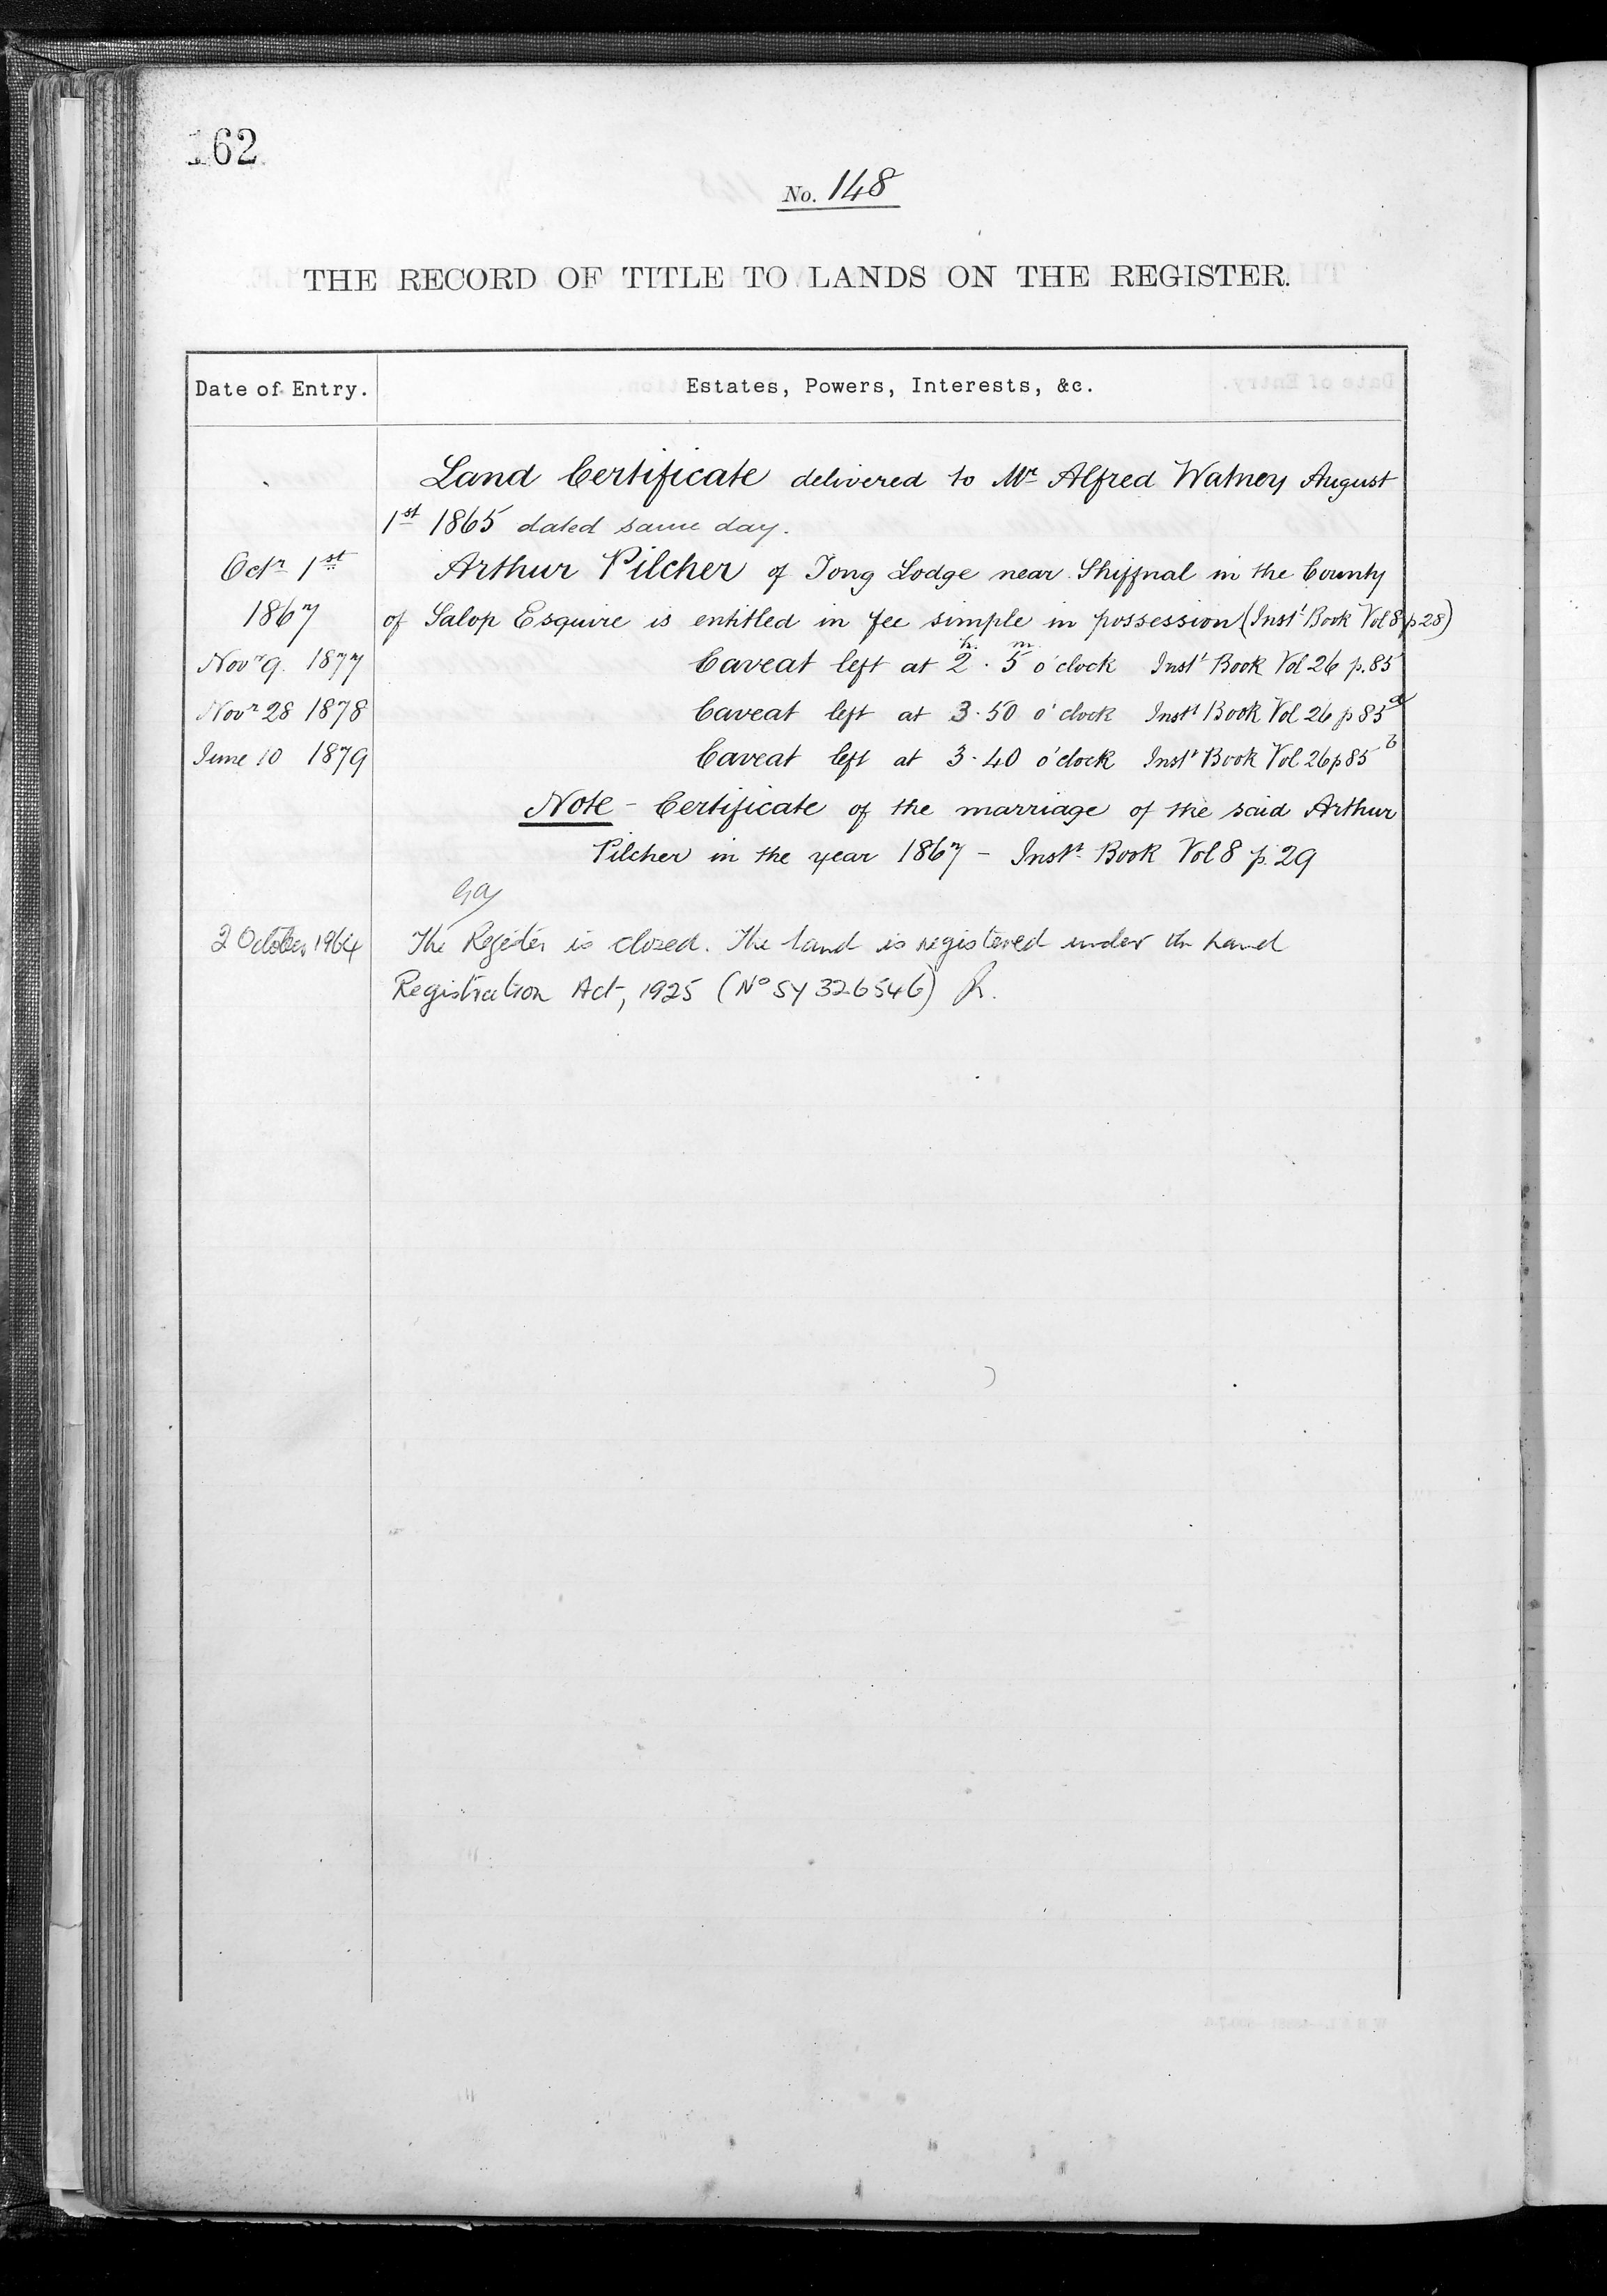 162
No. 148
THE RECORD OF TITLE TO LANDS ON THE REGISTER.
Date of Entry. Estates, Powers, Interests, &c.
Land Certificate delivered to Mr Alfred Watney August
1st 1865 dated same day.
Octr 1st Arthur Pilcher of Tong Lodge near Shiffnal in the County
1867 of Salop Esquire is entitled in fee simple in possession (Inst Book Vol 8 p 28)
Novr 9. 1877 Caveat left at 2h. 5m o'clock Inst Book Vol 26 p. 85
Novr 28 1878 Caveat left at 3.50 o'clock Inst Book Vol 26 p 85a
June 10 1879 Caveat left at 3.40 o'clock Inst Book Vol 26 p 85b
Note - Certificate of the marriage of the said Arthur
Pilcher in the year 1867 - Inst Book Vol 8 p. 29
2 October 1964 The Register is closed. The land is registered under the Land
Registration Act, 1925 (No SY 326546)